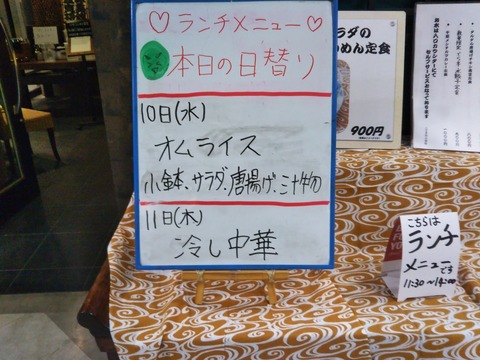 ♡ランチメニュー♡
本日の日替り
10日(水)
オムライス
小鉢、サラダ、唐揚げ、汁物
11日(木)
冷し中華
ラダの
めん定食
900円
こちらは
ランチ
メニューです
11:30～14:00